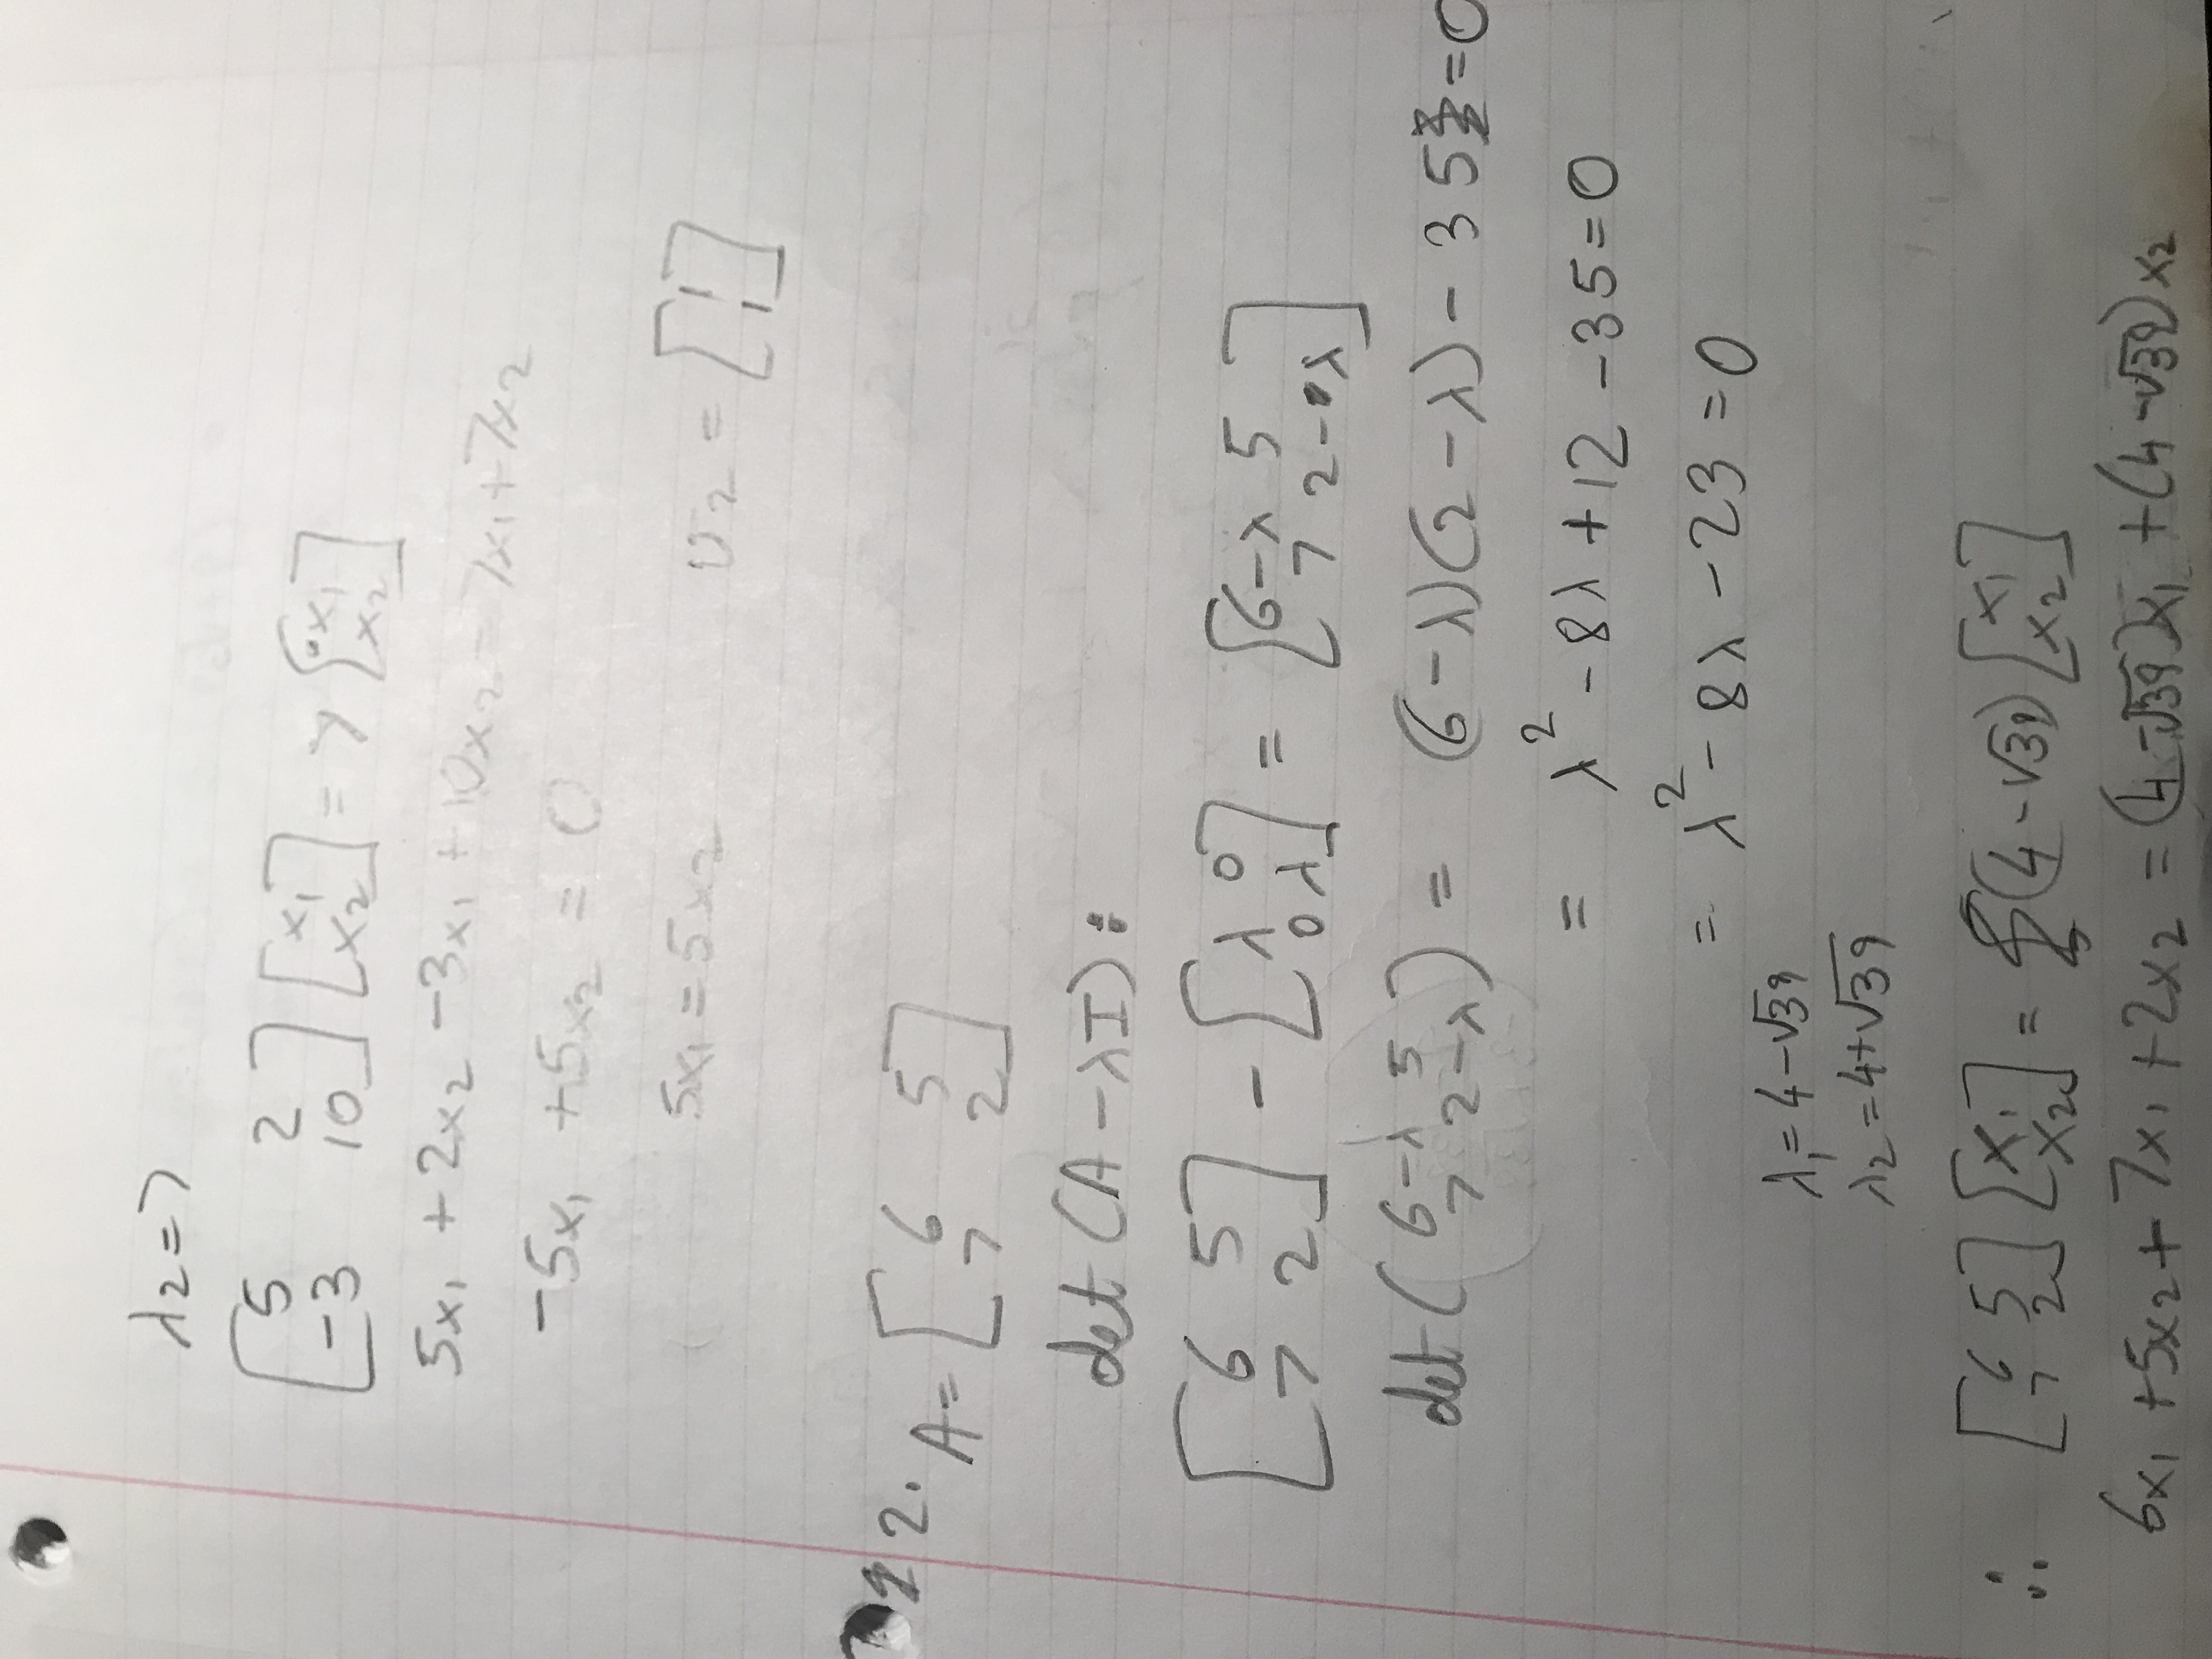 λ2=7
[5 2
-3 10] [x1
x2] = 7 [x1
x2]
5x1 + 2x2 -3x1 + 10x2 = 7x1+7x2
-5x1 +5x2 = 0
5x1 = 5x2 v2 = [1
1]
2. A= [6 5
7 2]
det (A-λI):
[6 5
7 2] - [λ 0
0 λ] = [6-λ 5
7 2-λ]
det (6-λ 5
7 2-λ) = (6-λ)(2-λ)-35=0
= λ²-8λ+12-35=0
= λ²-8λ-23=0
λ1=4-√39
λ2=4+√39
∴ [6 5
7 2] [x1
x2] = (4-√39) [x1
x2]
6x1+5x2+7x1+2x2 = (4-√39)x1+(4-√39)x2